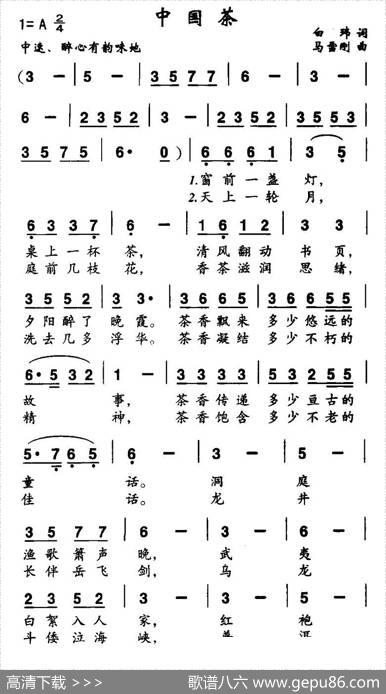 中国茶
1=A 2/4
中速、醉心有韵味地
白 玮 词
马雪刚 曲
(3 - | 5 - | 3 5 7 7 | 6 - | 5 - |
6 - | 2 3 5 2 | 3 - | 1 2 3 5 | 2 3 5 2 |
3 5 7 5 | 6· 0) | 6 6 6 1 | 3 5 |
1.窗前一盏 灯,
2.天上一轮 月,
6 3 3 7 | 6 - | 1 6 1 2 | 3 3 |
桌上一杯 茶, 清风翻动 书页,
庭前几枝 花, 香茶滋润 思绪,
3 5 5 2 | 3 3· | 3 3 3 5 | 3 6 6 5 5 |
夕阳醉了 晚霞。 茶香飘来 多少悠远的
洗去几多 浮华。 茶香凝结 多少不朽的
6· 5 3 2 | 1 - | 3 3 3 3 | 5 3 2 5 5 |
故 事, 茶香传递 多少亘古的
精 神, 茶香饱含 多少不老的
5· 7 6 5 | 6 - | 3 - | 5 - |
童 话。 洞 庭
佳 话。 龙 井
3 5 7 7 | 6 - | 3 - | 6 - |
渔歌箫声 晚, 武 夷
长伴岳飞 剑, 乌 龙
2 3 5 2 | 3 - | 3 - | 5 - |
白絮入人 家, 红 袍
斗倭泣海 峡,
高清下载 >>>
歌谱八六 www.gepu86.com